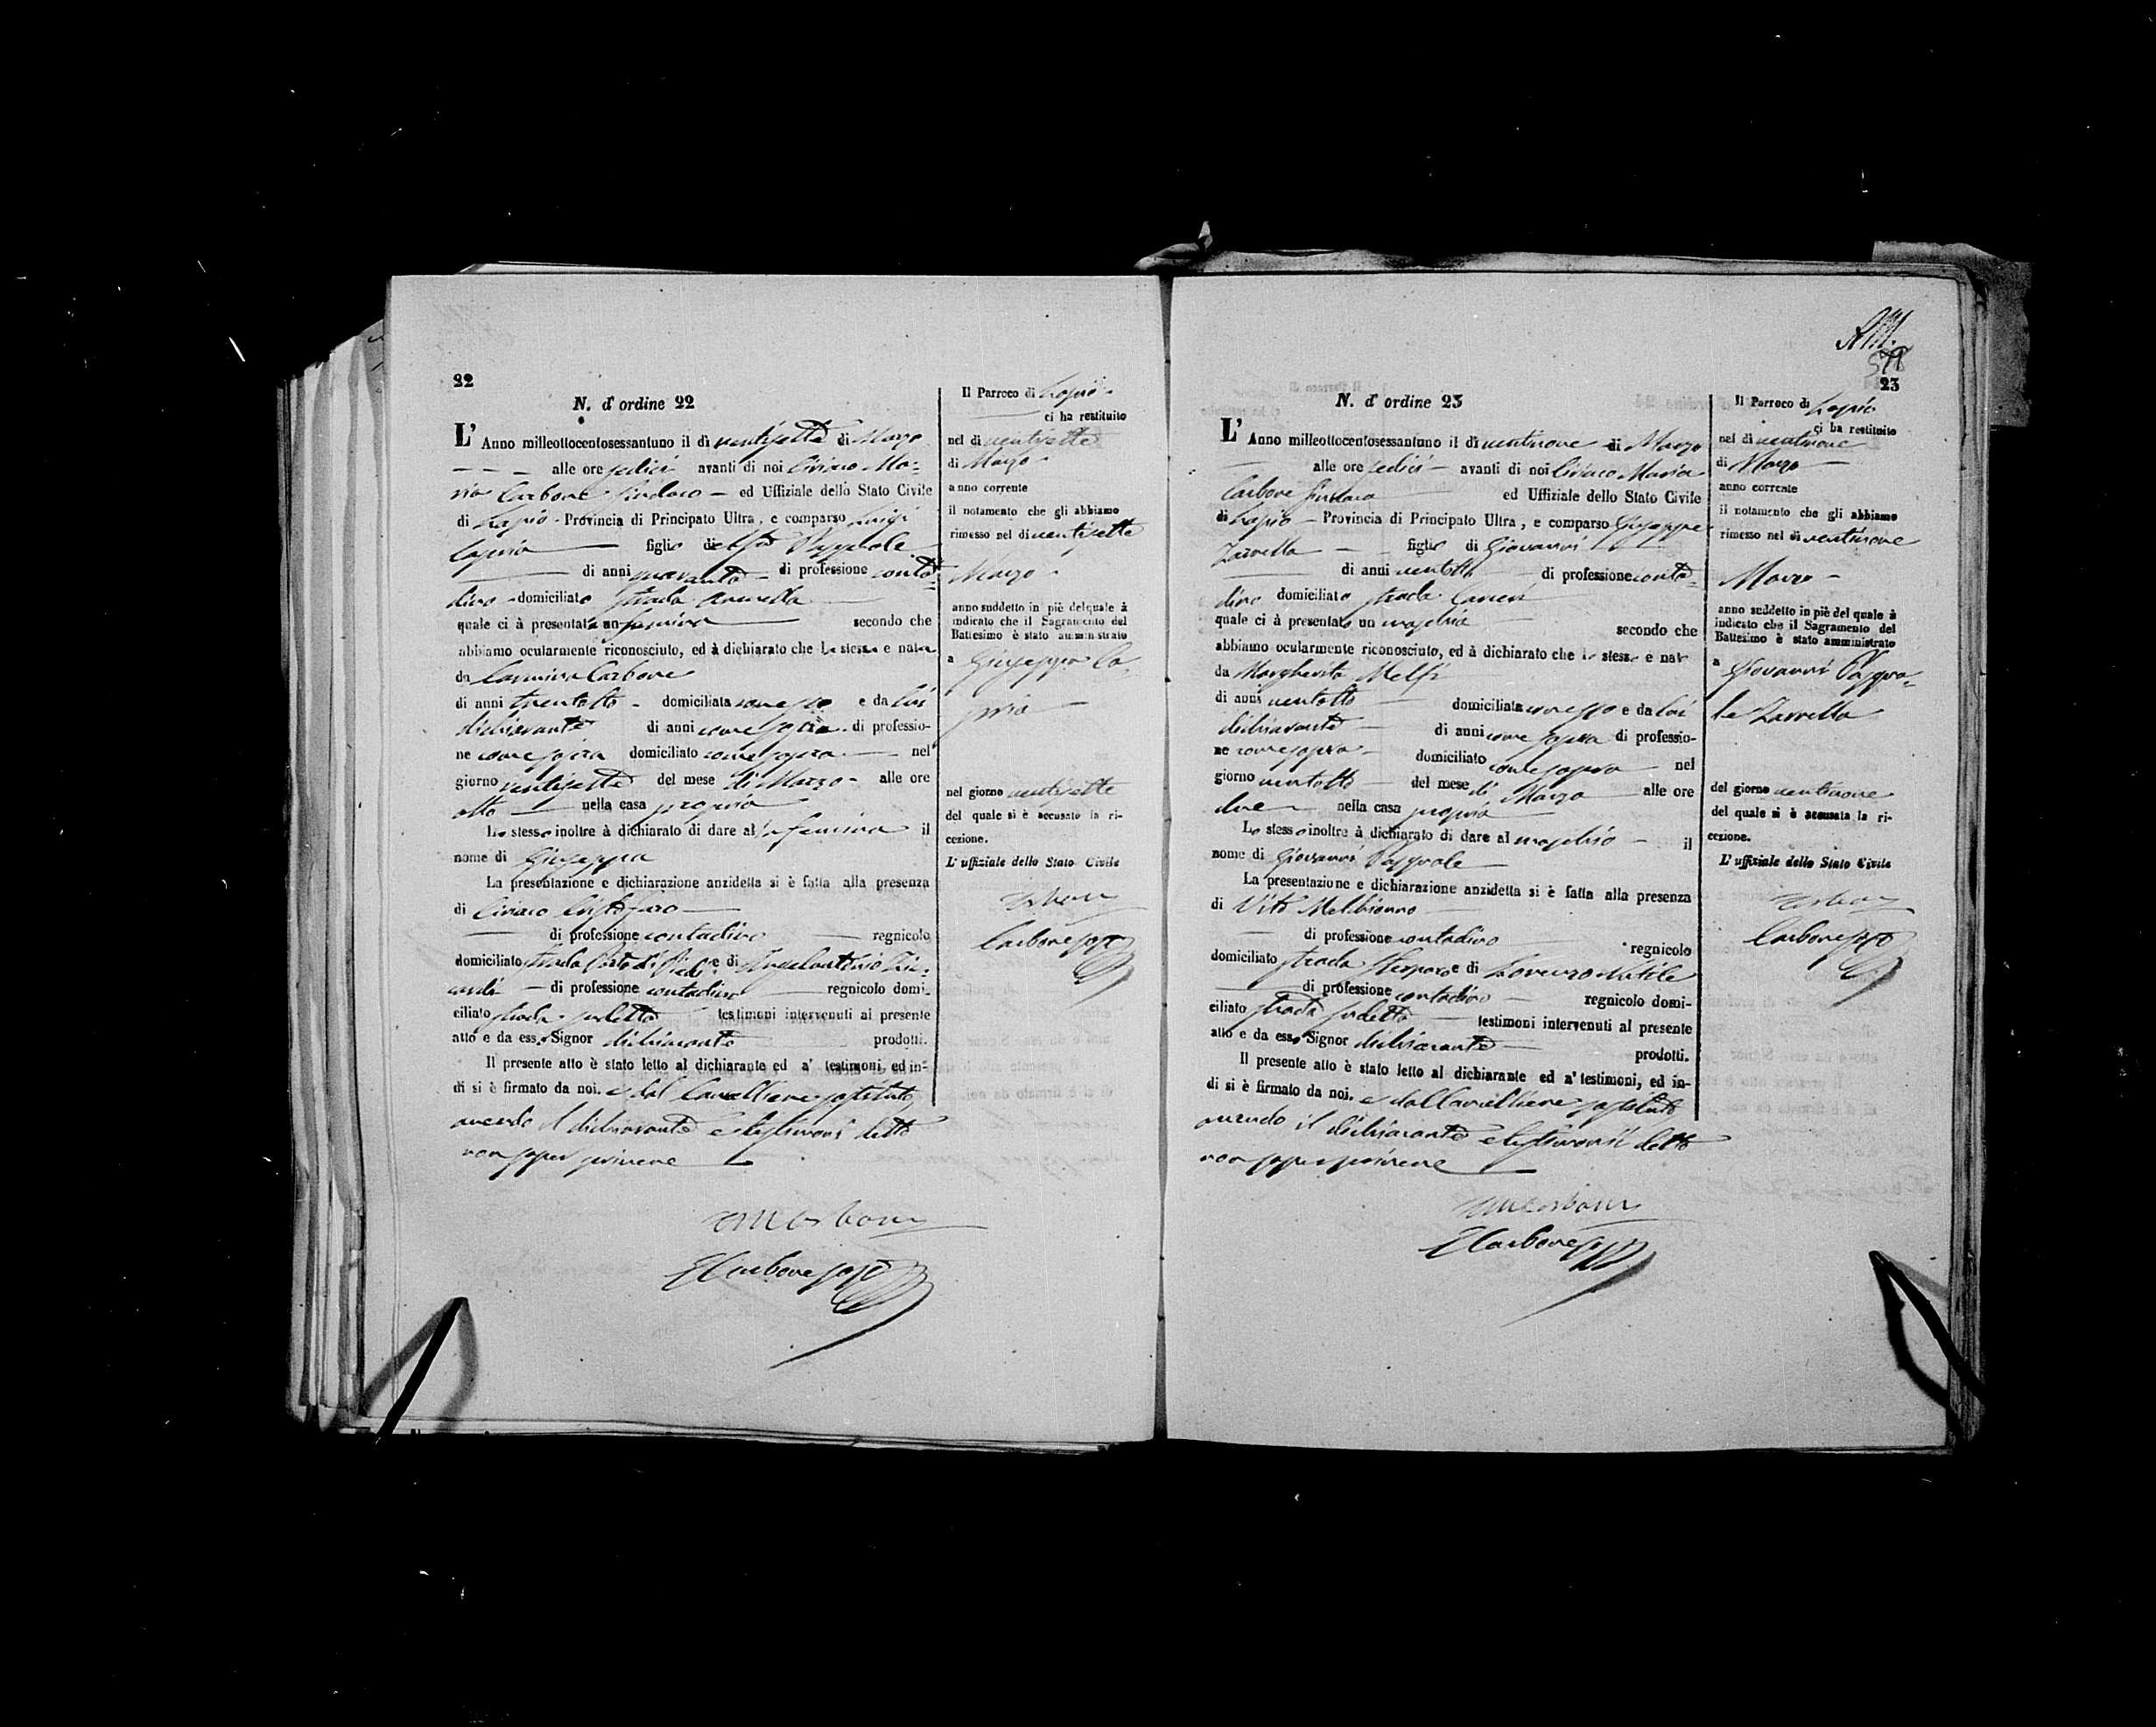 22
N. d' ordine 22
L' Anno milleottocentosessantuno il dì ventisette di Marzo
alle ore sedici avanti di noi Ciriaco Ma-
ria Carbone Sindaco ed Uffiziale dello Stato Civile
di Lapio Provincia di Principato Ultra, e comparso Luigi
Caprio figlio del fu Pasquale
di anni quaranta di professione conta-
dino domiciliato strada
quale ci à presentata una femina secondo che
abbiamo ocularmente riconosciuto, ed à dichiarato che la stessa e nata
da Carmina Carbone
di anni trentotto domiciliata come sopra e da lui
dichiarante di anni come sopra di professio-
ne come sopra domiciliato come sopra nel
giorno ventisette del mese di Marzo alle ore
otto nella casa propria
Lo stesso inoltre à dichiarato di dare al la femina il
nome di Giuseppa
La presentazione e dichiarazione anzidetta si è fatta alla presenza
di Ciriaco Cristofaro
di professione contadino regnicolo
domiciliato strada e di Angelantonio
di professione contadino regnicolo domi-
ciliato strada sudetta testimoni intervenuti al presente
atto e da esso Signor dichiarante prodotti.
Il presente atto è stato letto al dichiarante ed a' testimoni, ed in-
di si è firmato da noi. e dal Cancelliere sostituto
avendo il dichiarante e testimoni detto
non saper scrivere
Carbone
Il Parroco di Lapio
ci ha restituito
nel dì ventisette
di Marzo
anno corrente
il notamento che gli abbiamo
rimesso nel dì ventisette
Marzo
anno suddetto in piè del quale à
indicato che il Sagramento del
Battesimo è stato amministrato
a Giuseppa Ca-
prio
nel giorno ventisette
del quale si è accusato la ri-
cezione.
L' uffiziale dello Stato Civile
Carbone
23
N. d' ordine 23
L' Anno milleottocentosessantuno il dì ventinove di Marzo
alle ore sedici avanti di noi Ciriaco Maria
Carbone Sindaco ed Uffiziale dello Stato Civile
di Lapio Provincia di Principato Ultra, e comparso Giuseppe
Zarrella figlio di Giovanni
di anni ventotto di professione conta-
dino domiciliato strada
quale ci à presentato un maschio secondo che
abbiamo ocularmente riconosciuto, ed à dichiarato che lo stesso e nato
da Margherita Melfi
di anni ventotto domiciliata come sopra e da lui
dichiarante di anni come sopra di professio-
ne come sopra domiciliato come sopra nel
giorno ventotto del mese di Marzo alle ore
due nella casa propria
Lo stesso inoltre à dichiarato di dare al maschio il
nome di Giovanni Pasquale
La presentazione e dichiarazione anzidetta si è fatta alla presenza
di Vito
di professione contadino regnicolo
domiciliato strada e di Lorenzo
di professione contadino regnicolo domi-
ciliato strada sudetta testimoni intervenuti al presente
atto e da esso Signor dichiarante prodotti.
Il presente atto è stato letto al dichiarante ed a' testimoni, ed in-
di si è firmato da noi. e dal Cancelliere sostituto
avendo il dichiarante e testimoni detto
non saper scrivere
Carbone
Il Parroco di Lapio
ci ha restituito
nel dì ventinove
di Marzo
anno corrente
il notamento che gli abbiamo
rimesso nel dì ventinove
Marzo
anno suddetto in piè del quale à
indicato che il Sagramento del
Battesimo è stato amministrato
a Giovanni Pasqua-
le Zarrella
del giorno ventinove
del quale si è accusata la ri-
cezione.
L' uffiziale dello Stato Civile
Carbone